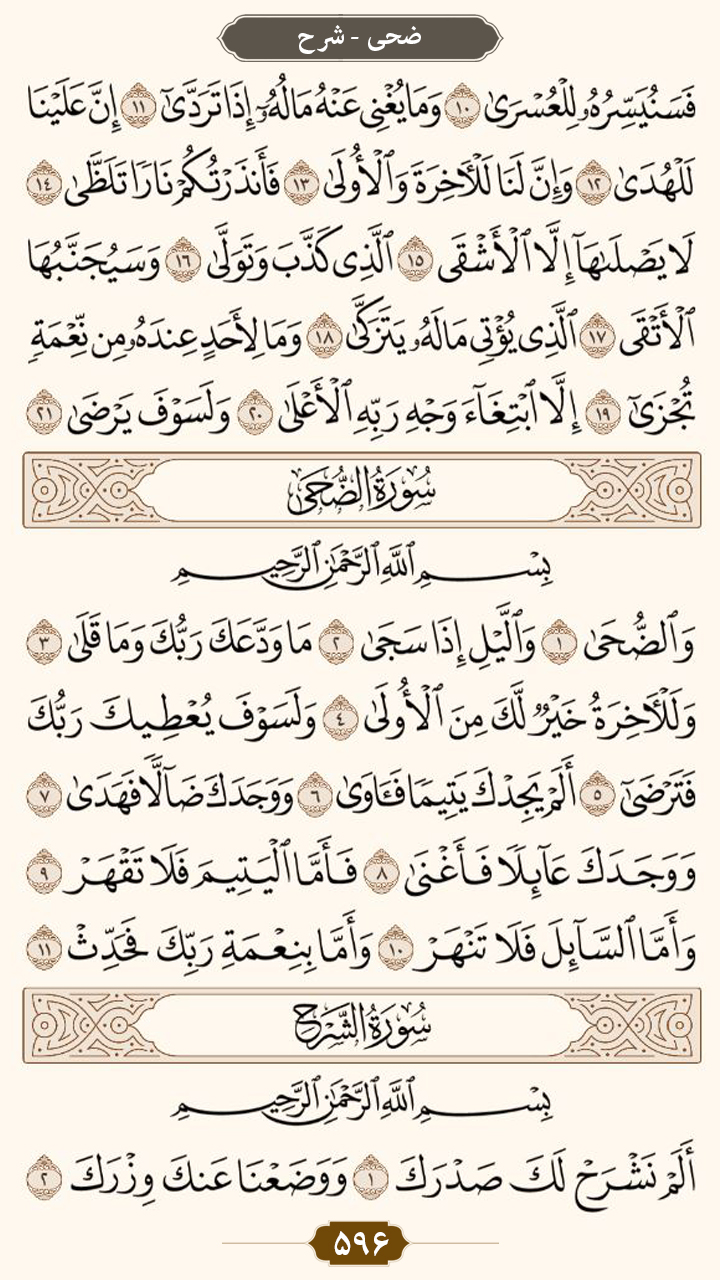 ضحى - شرح
فَسَنُيَسِّرُهُۥ لِلۡعُسۡرَىٰ ١٠ وَمَا يُغۡنِي عَنۡهُ مَالُهُۥٓ إِذَا تَرَدَّىٰٓ ١١ إِنَّ عَلَيۡنَا
لَلۡهُدَىٰ ١٢ وَإِنَّ لَنَا لَلۡأٓخِرَةَ وَٱلۡأُولَىٰ ١٣ فَأَنذَرۡتُكُمۡ نَارٗا تَلَظَّىٰ ١٤
لَا يَصۡلَىٰهَآ إِلَّا ٱلۡأَشۡقَى ١٥ ٱلَّذِي كَذَّبَ وَتَوَلَّىٰ ١٦ وَسَيُجَنَّبُهَا
ٱلۡأَتۡقَى ١٧ ٱلَّذِي يُؤۡتِي مَالَهُۥ يَتَزَكَّىٰ ١٨ وَمَا لِأَحَدٍ عِندَهُۥ مِن نِّعۡمَةٖ
تُجۡزَىٰٓ ١٩ إِلَّا ٱبۡتِغَآءَ وَجۡهِ رَبِّهِ ٱلۡأَعۡلَىٰ ٢٠ وَلَسَوۡفَ يَرۡضَىٰ ٢١
سُورَةُ الضُّحَى
بِسۡمِ ٱللَّهِ ٱلرَّحۡمَٰنِ ٱلرَّحِيمِ
وَٱلضُّحَىٰ ١ وَٱلَّيۡلِ إِذَا سَجَىٰ ٢ مَا وَدَّعَكَ رَبُّكَ وَمَا قَلَىٰ ٣
وَلَلۡأٓخِرَةُ خَيۡرٞ لَّكَ مِنَ ٱلۡأُولَىٰ ٤ وَلَسَوۡفَ يُعۡطِيكَ رَبُّكَ
فَتَرۡضَىٰٓ ٥ أَلَمۡ يَجِدۡكَ يَتِيمٗا فَـَٔاوَىٰ ٦ وَوَجَدَكَ ضَآلّٗا فَهَدَىٰ ٧
وَوَجَدَكَ عَآئِلٗا فَأَغۡنَىٰ ٨ فَأَمَّا ٱلۡيَتِيمَ فَلَا تَقۡهَرۡ ٩
وَأَمَّا ٱلسَّآئِلَ فَلَا تَنۡهَرۡ ١٠ وَأَمَّا بِنِعۡمَةِ رَبِّكَ فَحَدِّثۡ ١١
سُورَةُ الشَّرۡحِ
بِسۡمِ ٱللَّهِ ٱلرَّحۡمَٰنِ ٱلرَّحِيمِ
أَلَمۡ نَشۡرَحۡ لَكَ صَدۡرَكَ ١ وَوَضَعۡنَا عَنكَ وِزۡرَكَ ٢
۵۹۶